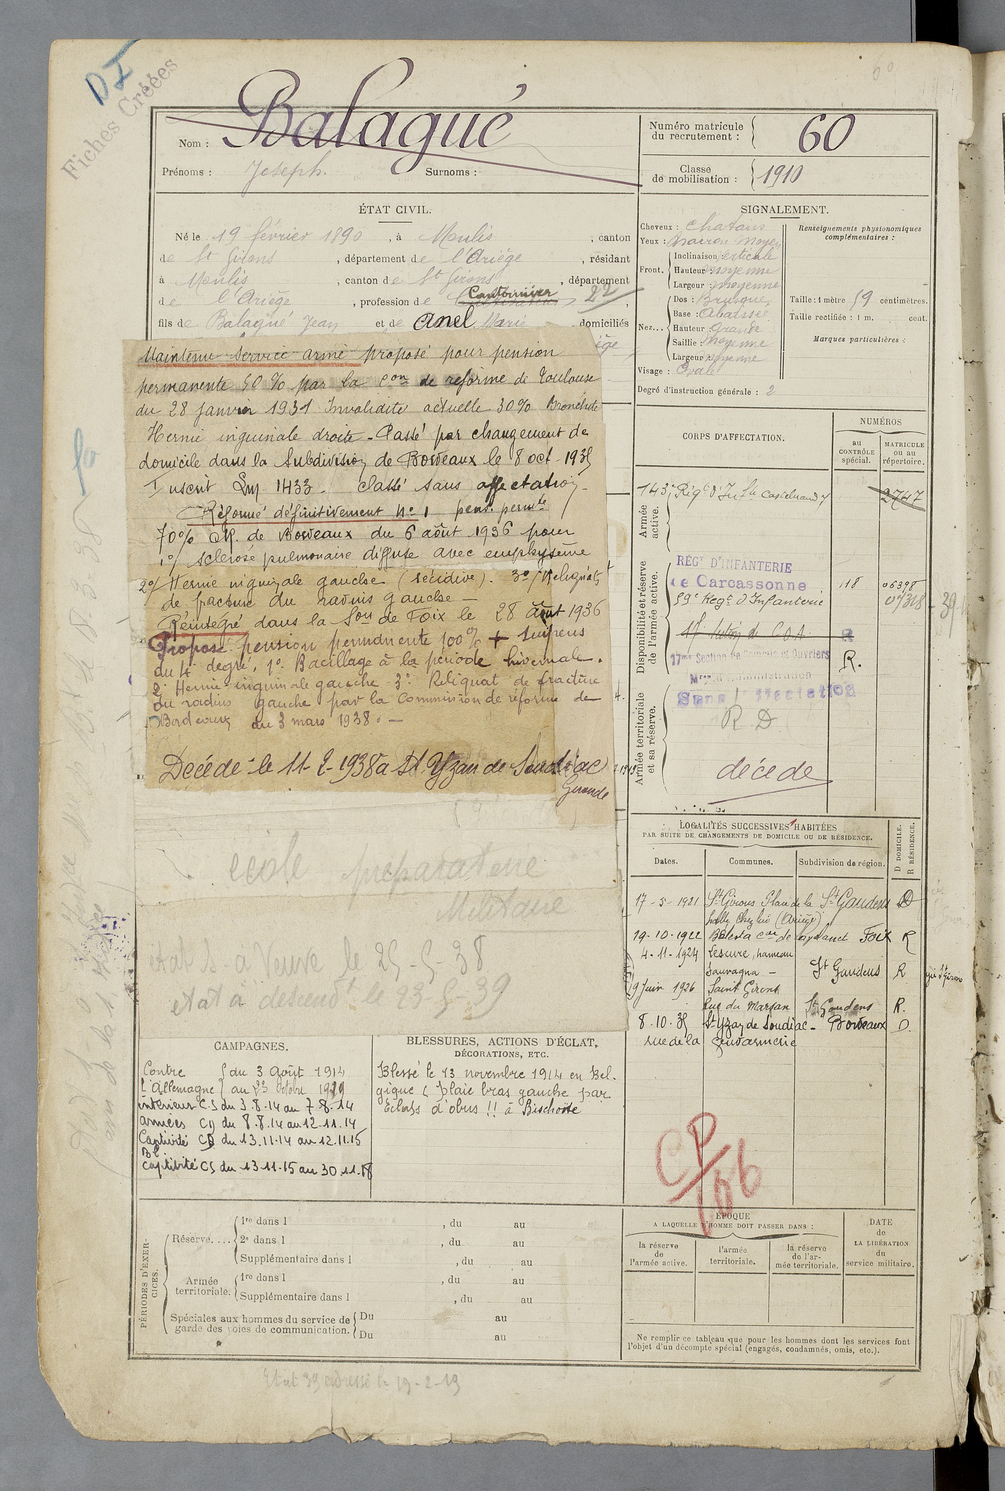 D I
Fiches Créées
Nom : Balagué
Prénoms : Joseph. Surnoms :
Numéro matricule du recrutement : 60
Classe de mobilisation : 1910
ÉTAT CIVIL.
Né le 19 février 1890, à Moulis, canton
de St Girons, département de l'Ariège, résidant
à Moulis, canton de St Girons, département
de l'Ariège, profession de Cantonnier 22
fils de Balagué Jean et de Anel Marie domiciliés
SIGNALEMENT.
Cheveux : chatain
Yeux : marron moyen
Front. Inclinaison verticale
Hauteur moyenne
Largeur moyenne
Nez... Dos : Busqué
Base : Abaissée
Hauteur : Grande
Saillie : Moyenne
Largeur moyenne
Visage : Oval
Renseignements physionomiques complémentaires :
Taille : 1 mètre 59 centimètres.
Taille rectifiée : 1 m. cent.
Marques particulières :
Degré d'instruction générale : 2
Maintenu Service armé proposé pour pension
permanente 50 % par la Con de reforme de Toulouse
du 28 janvier 1931 Invalidité actuelle 30% Bronchite
Hernie inguinale droite - Passé par changement de
domicile dans la Subdivision de Bordeaux le 8 oct. 1935
Inscrit 1433. Classé sans affectation -
Réformé définitivement No 1 pens. permte
70% CR. de Bordeaux du 6 août 1936 pour
1o/ sclérose pulmonaire diffuse avec emphysème
2o/ Hernie inguinale gauche (récidive). 3o/ Reliquats
de fracture du radius gauche -
Réintégré dans la Son de Foix le 28 août 1936
Proposé pension permanente 100% + surpens
du 4e degré, 1o Bacillage à la période hivernale.
2o Hernie inguinale gauche 3o Reliquat de fracture
du radius gauche par la Commission de réforme de
Bordeaux du 3 mars 1938. -
Décédé le 11-2-1938 à St Yzan de Soudiac
Gironde
école préparatoire
Militaire
etat S - a Veuve le 25-5-38
etat a descend. le 23-5-39
CORPS D'AFFECTATION.
NUMÉROS
au CONTRÔLE spécial.
MATRICULE ou au répertoire.
Armée active.
143e Régt d'Inf. Castelnaudary 2747
Disponibilité et réserve de l'armée active.
RÉGt D'INFANTERIE
de Carcassonne 118 06398
59e Regt d'Infanterie
17e Section de C.O.A R
17me Section de Commis et Ouvriers R.
Mres d'Administration
Sans Affectation
Armée territoriale et sa réserve.
R D
décédé
LOCALITÉS SUCCESSIVES HABITÉES
PAR SUITE DE CHANGEMENTS DE DOMICILE OU DE RÉSIDENCE.
Dates. Communes. Subdivision de région. D. DOMICILE. R. RÉSIDENCE.
17-3-1921 St Girons St Gaudens D
(Ariège)
19-10-1922 Foix R
4-11-1924 Lescure, hameau
Sauvagna - St Gaudens R
9 juin 1926 Saint Girons
Rue du Marsan St Gaudens R.
8-10-35 St Yzan de Soudiac - Bordeaux D.
rue de la gendarmerie
CAMPAGNES.
Contre l'Allemagne du 3 Août 1914
au 23 octobre 1919
intérieur CS du 3.8.14 au 7.8.14
armées CD du 8.8.14 au 12.11.14
Captivité CD du 13.11.14 au 12.11.15
Bl.
Captivité CS du 13.11.15 au 30.11.18
BLESSURES, ACTIONS D'ÉCLAT, DÉCORATIONS, ETC.
Blessé le 13 novembre 1914 en Bel-
gique (plaie bras gauche par
Eclats d'obus !! à Bischoote
CP/166
PÉRIODES D'EXERCICES.
Réserve.... 1re dans l , du au
2e dans l , du au
Supplémentaire dans l , du au
Armée territoriale: 1re dans l , du au
Supplémentaire dans l , du au
Spéciales aux hommes du service de garde des voies de communication. Du au
Du au
ÉPOQUE
A LAQUELLE L'HOMME DOIT PASSER DANS :
la réserve de l'armée active.
l'armée territoriale.
la réserve de l'armée territoriale.
DATE DE LA LIBÉRATION du service militaire.
Ne remplir ce tableau que pour les hommes dont les services font
l'objet d'un décompte spécial (engagés, condamnés, omis, etc.).
Etat 39 adressé le 19-2-19